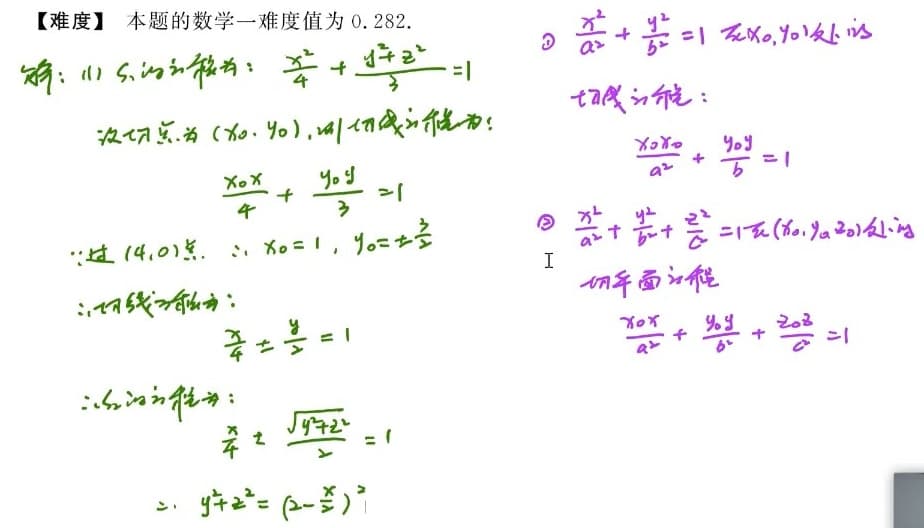 【难度】 本题的数学一难度值为 0.282.
解：(1) S₁的方程为： x²/4 + (y²+z²)/3 =1
设切点为 (x₀, y₀), 则切线方程为：
x₀x/4 + y₀y/3 =1
∵过 (4,0)点. ∴ x₀=1, y₀=±3/2
∴切线方程为：
x/4 ± y/2 = 1
∴S₂的方程为：
x/4 ± √(y²+z²)/2 = 1
∴ y²+z² = (2-x/2)²
① x²/a² + y²/b² =1 在(x₀,y₀)处的
切线方程：
x₀x₀/a² + y₀y/b =1
② x²/a² + y²/b² + z²/c² =1在(x₀,y₀,z₀)处的
切平面方程
x₀x/a² + y₀y/b² + z₀z/c² =1